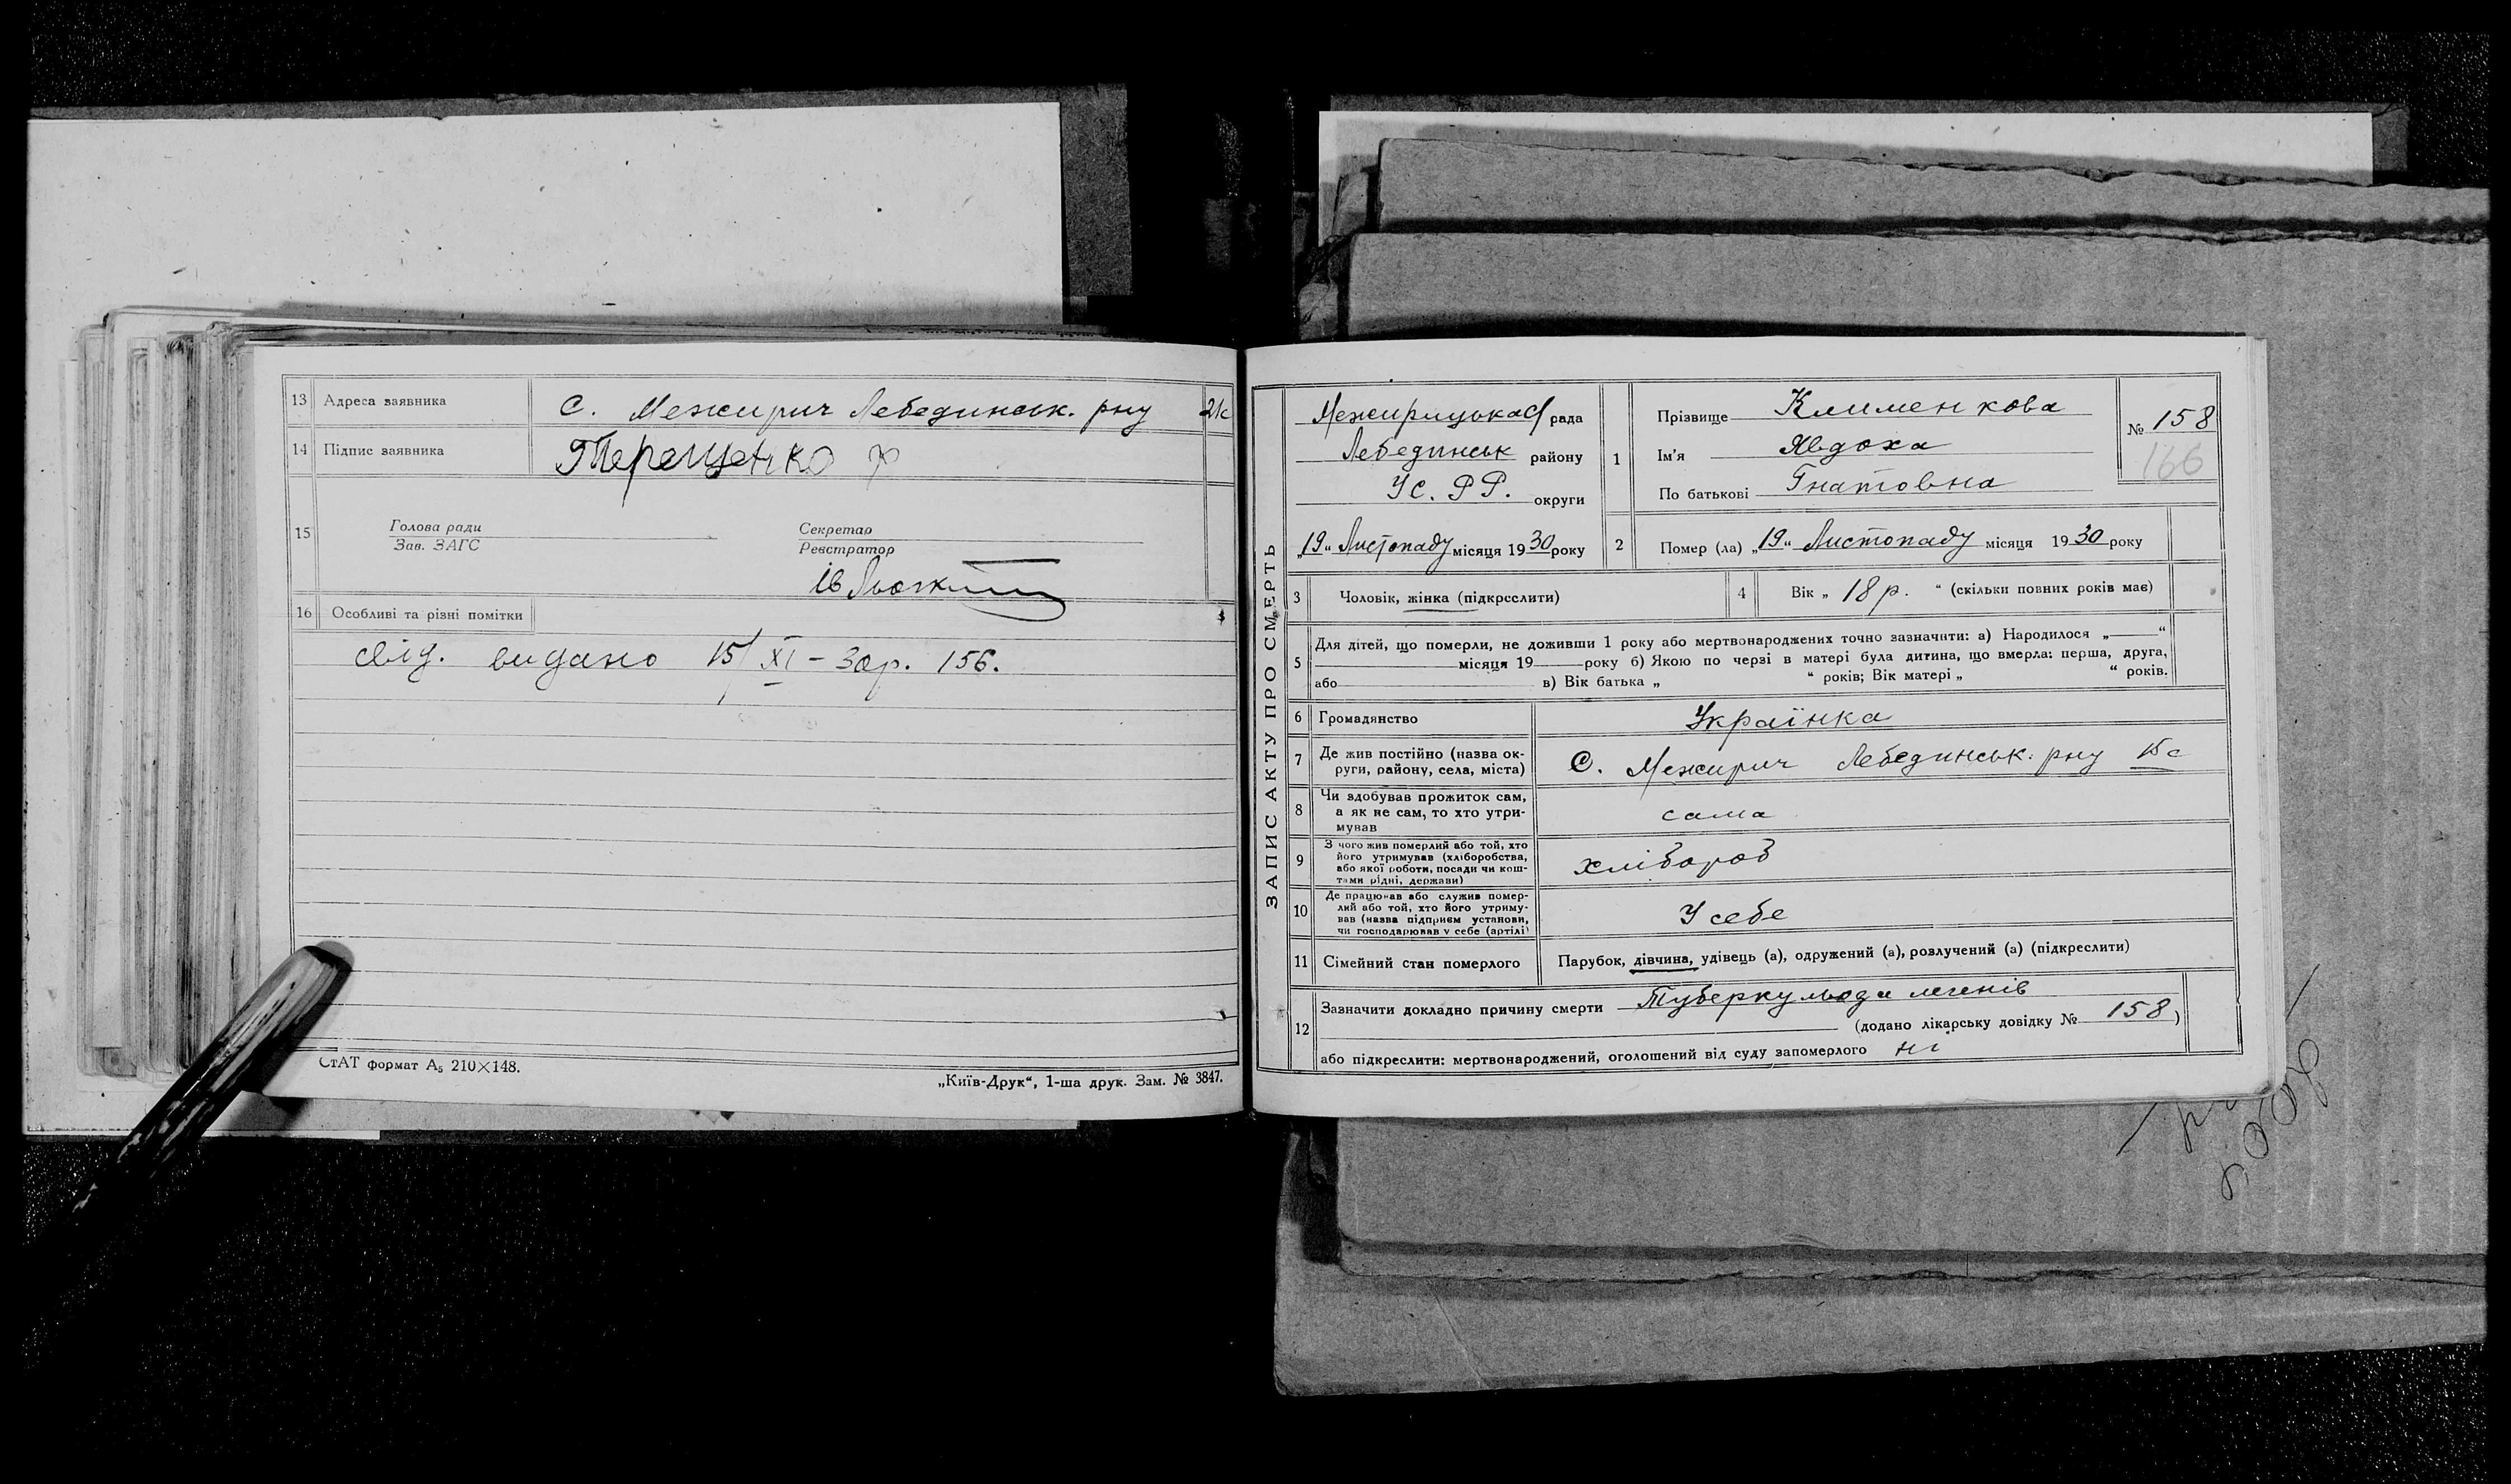 13 Адреса заявника С. Межирич Лебединськ. рну 21с
14 Підпис заявника Терещенко Ф
15 Голова ради
Зав. ЗАГС
Секретар
Реєстратор
16 Особливі та різні помітки
свід. видано 15/XI – 30р. 156.
СтАТ формат А₅ 210×148.
„Київ-Друк“, 1-ша друк. Зам. № 3847.
ЗАПИС АКТУ ПРО СМЕРТЬ
Межирицька с/рада
Лебединськ району
УС. РР. округи
„19“ Листопаду місяця 1930 року
1 Прізвище Клименкова
Ім'я Явдоха
По батькові Гнатовна
№ 158
166
2 Помер (ла) „19“ Листопаду місяця 1930 року
3 Чоловік, жінка (підкреслити)
4 Вік „ 18 р. “ (скільки повних років має)
5 Для дітей, що померли, не доживши 1 року або мертвонароджених точно зазначити: а) Народилося „—“
місяця 19 року б) Якою по черзі в матері була дитина, що вмерла: перша, друга,
або в) Вік батька „ “ років; Вік матері „ “ років.
6 Громадянство Українка
7 Де жив постійно (назва ок-
руги, району, села, міста) С. Межирич Лебединськ. рну 15 с
8 Чи здобував прожиток сам,
а як не сам, то хто утри-
мував сама
9 З чого жив померлий або той, хто
його утримував (хліборобства,
або якої роботи, посади чи кош-
тами рідні, держави) хлібороб
10 Де працював або служив помер-
лий або той, хто його утриму-
вав (назва підприєм установи,
чи господарював у себе (артілі) У себе
11 Сімейний стан померлого Парубок, дівчина, удівець (а), одружений (а), розлучений (а) (підкреслити)
12 Зазначити докладно причину смерти Туберкульода легенів
(додано лікарську довідку № 158)
або підкреслити: мертвонароджений, оголошений від суду запомерлого ні